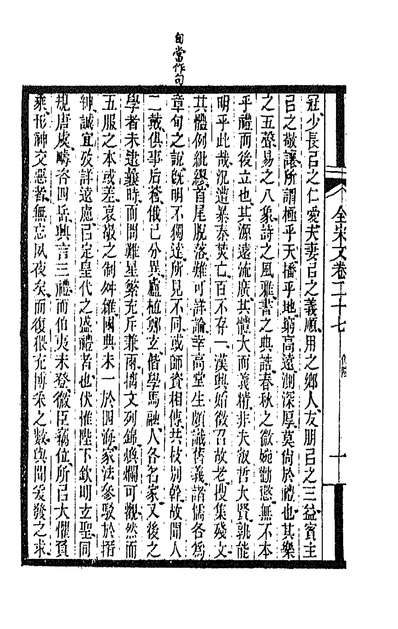 旬當作句
全宋文卷二十七 傅隆 十
冠少長㠯之仁愛夫妻㠯之義順用之鄉人友朋㠯之三益賓主
㠯之敬讓所謂極乎天播乎地窮高遠測深厚莫尚於禮也其樂
之五聲易之八象詩之風雅書之典誥春秋之微婉勸懲無不本
乎禮而後立也其源遠流廣其體大而義精非夫叡哲大賢孰能
明乎此哉況遭暴秦焚亡百不存一漢興始徵召故老搜集殘文
其體例紕繆首尾脫落難可詳論幸高堂生頗識舊義諸儒各爲
章旬之說旣明不獨達所見不同或師資相傳共枝別幹故聞人
二戴俱事后蒼俄已分異盧植鄭玄偕學馬融人各名家又後之
學者未逮曩時而問難星繁充斥兼兩摛文列錦煥爛可觀然而
五服之本或差哀敬之制舛雜國典未一於四海家法參駁於搢
紳誠宜攷詳遠慮㠯定皇代之盛禮者也伏惟陛下欽明玄聖同
規唐虞疇咨四岳興言三禮而伯夷未登微臣竊位所㠯大懼負
乘形神交惡者無忘夙夜矣而復猥充博采之數與聞爰發之求